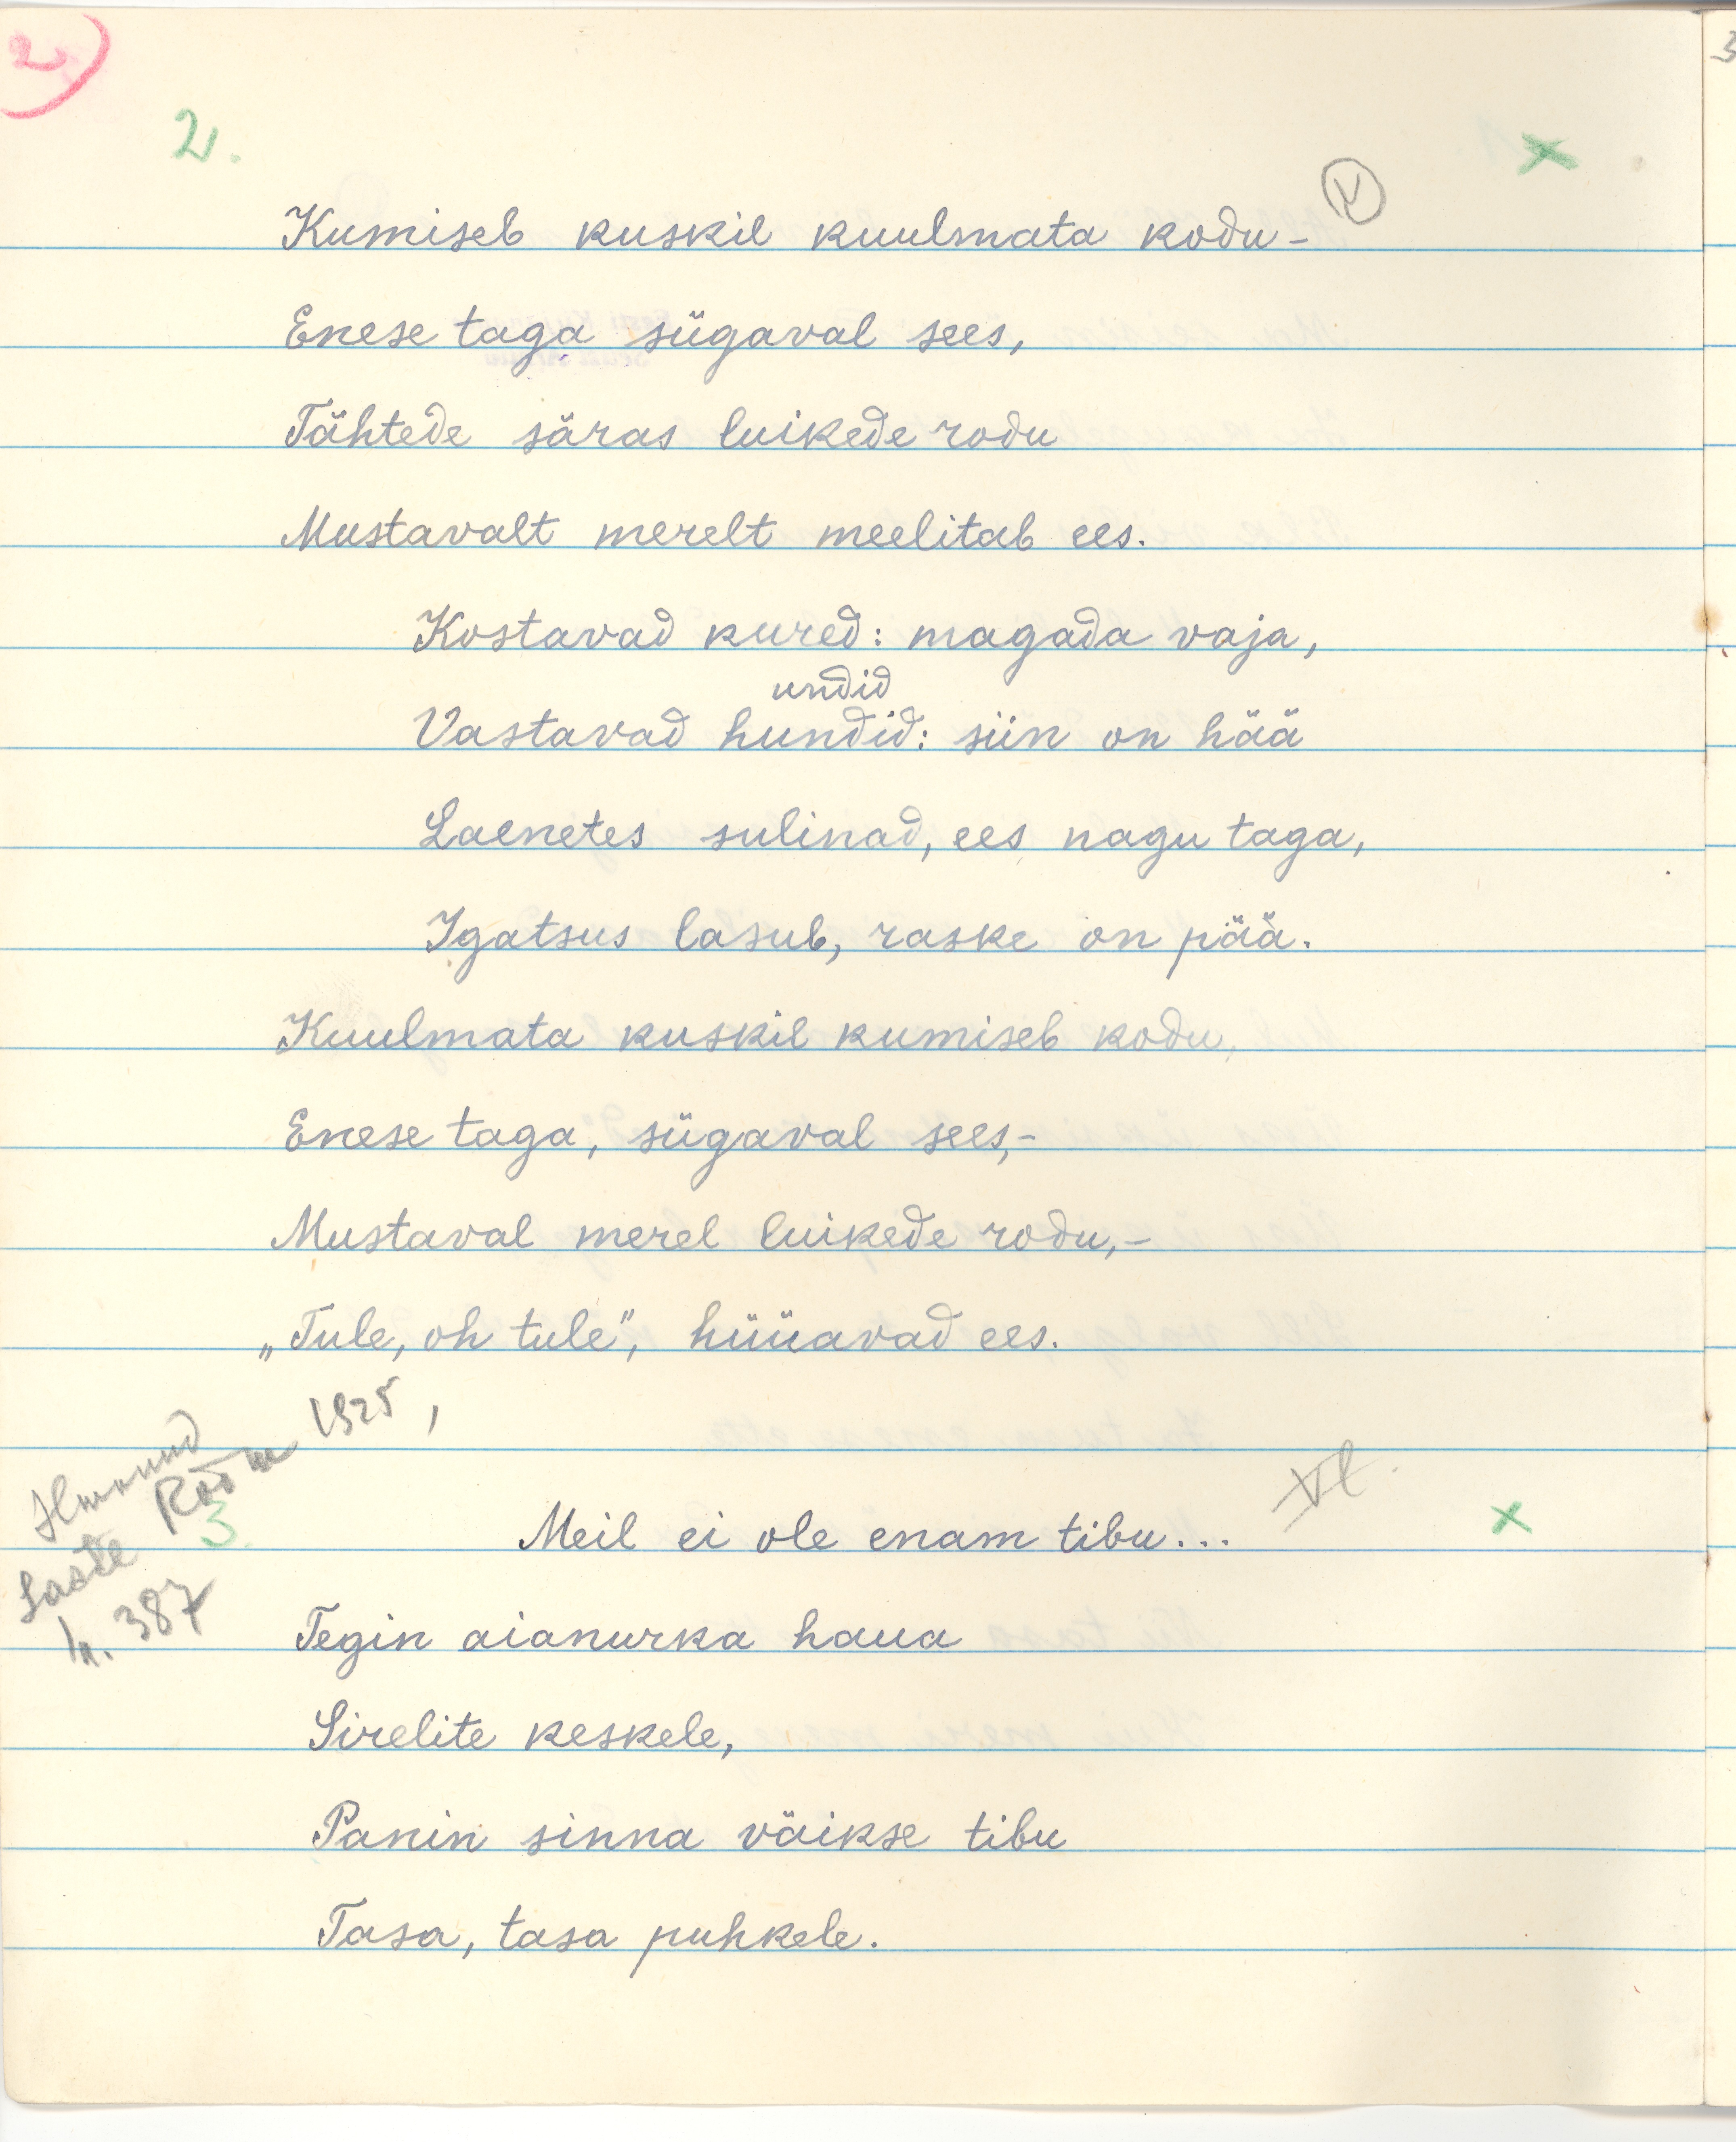 2)
2.
V
Kumiseb kuskil kuulmata kodu -
Enese taga sügaval sees,
Tähtede säras luikede rodu
Mustavalt merelt meelitab ees.
Kostavad kured: magada vaja,
undid
Vastavad hundid: siin on hää
Laenetes sulinad, ees nagu taga,
Igatsus lasub, raske on pää.
Kuulmata kuskil kumiseb kodu,
Enese taga, sügaval sees,-
Mustaval merel luikede rodu,-
„Tule, oh tule", hüüavad ees.
Ilmunud
Laste Rõõm 1925,
lk. 387
3.
VI.
Meil ei ole enam tibu...
Tegin aianurka haua
Sirelite keskele,
Panin sinna väikse tibu
Tasa, tasa puhkele.